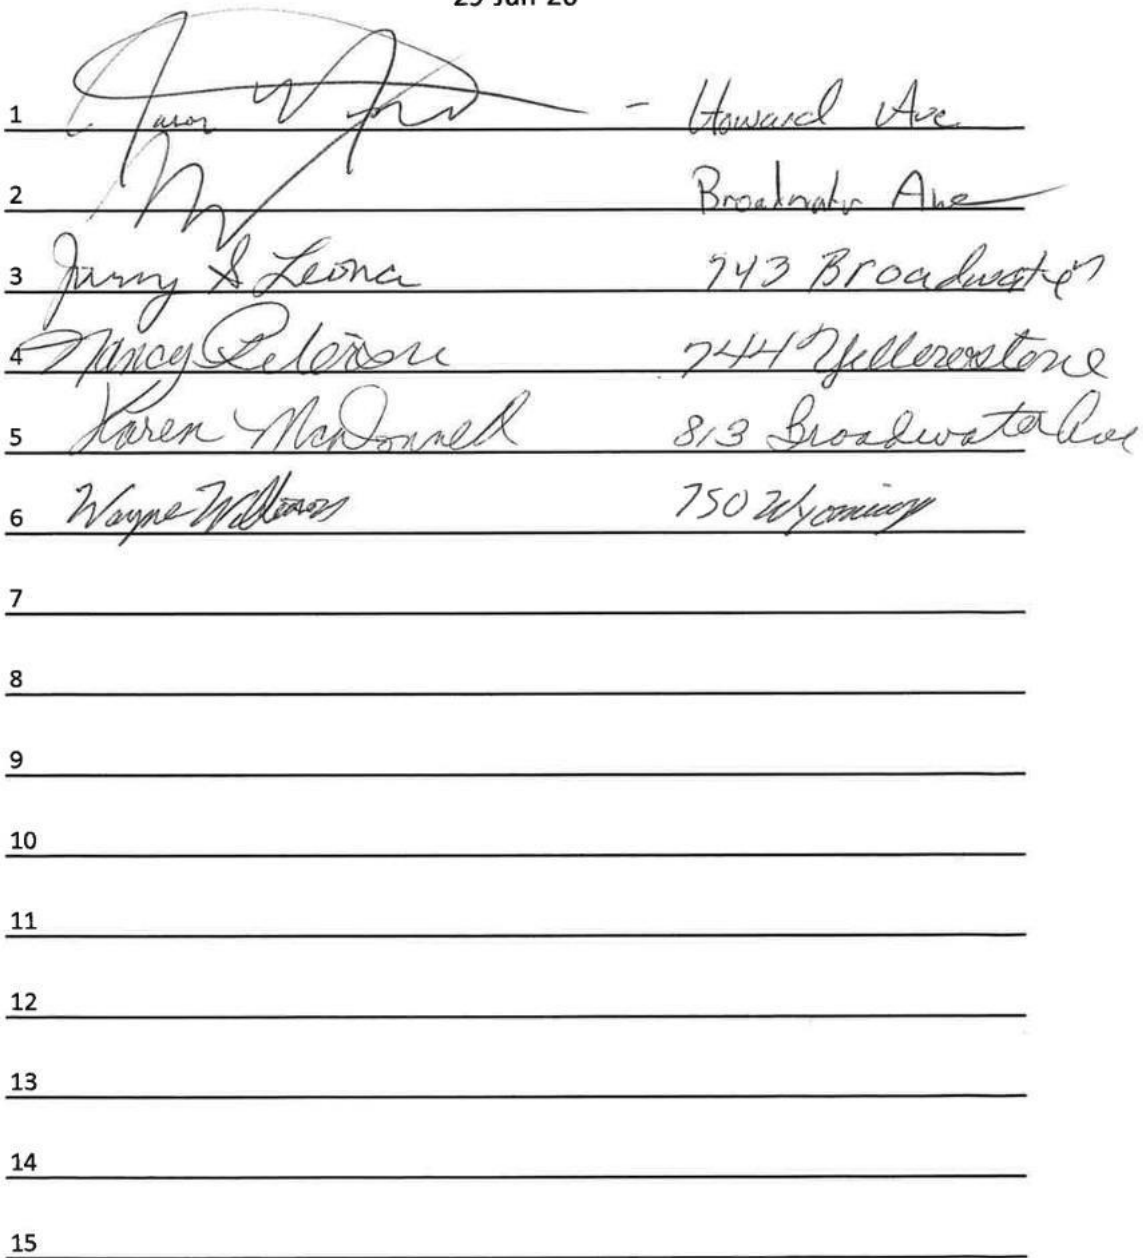 29-Jun-20
1 Jason W - Howard Ave
2 Broadwater Ave
3 Jerry & Leona 743 Broadwater
4 Nancy Peterson 744 Yellowstone
5 Karen MacDonnell 813 Broadwater Ave
6 Wayne Williams 750 Wyoming
7
8
9
10
11
12
13
14
15